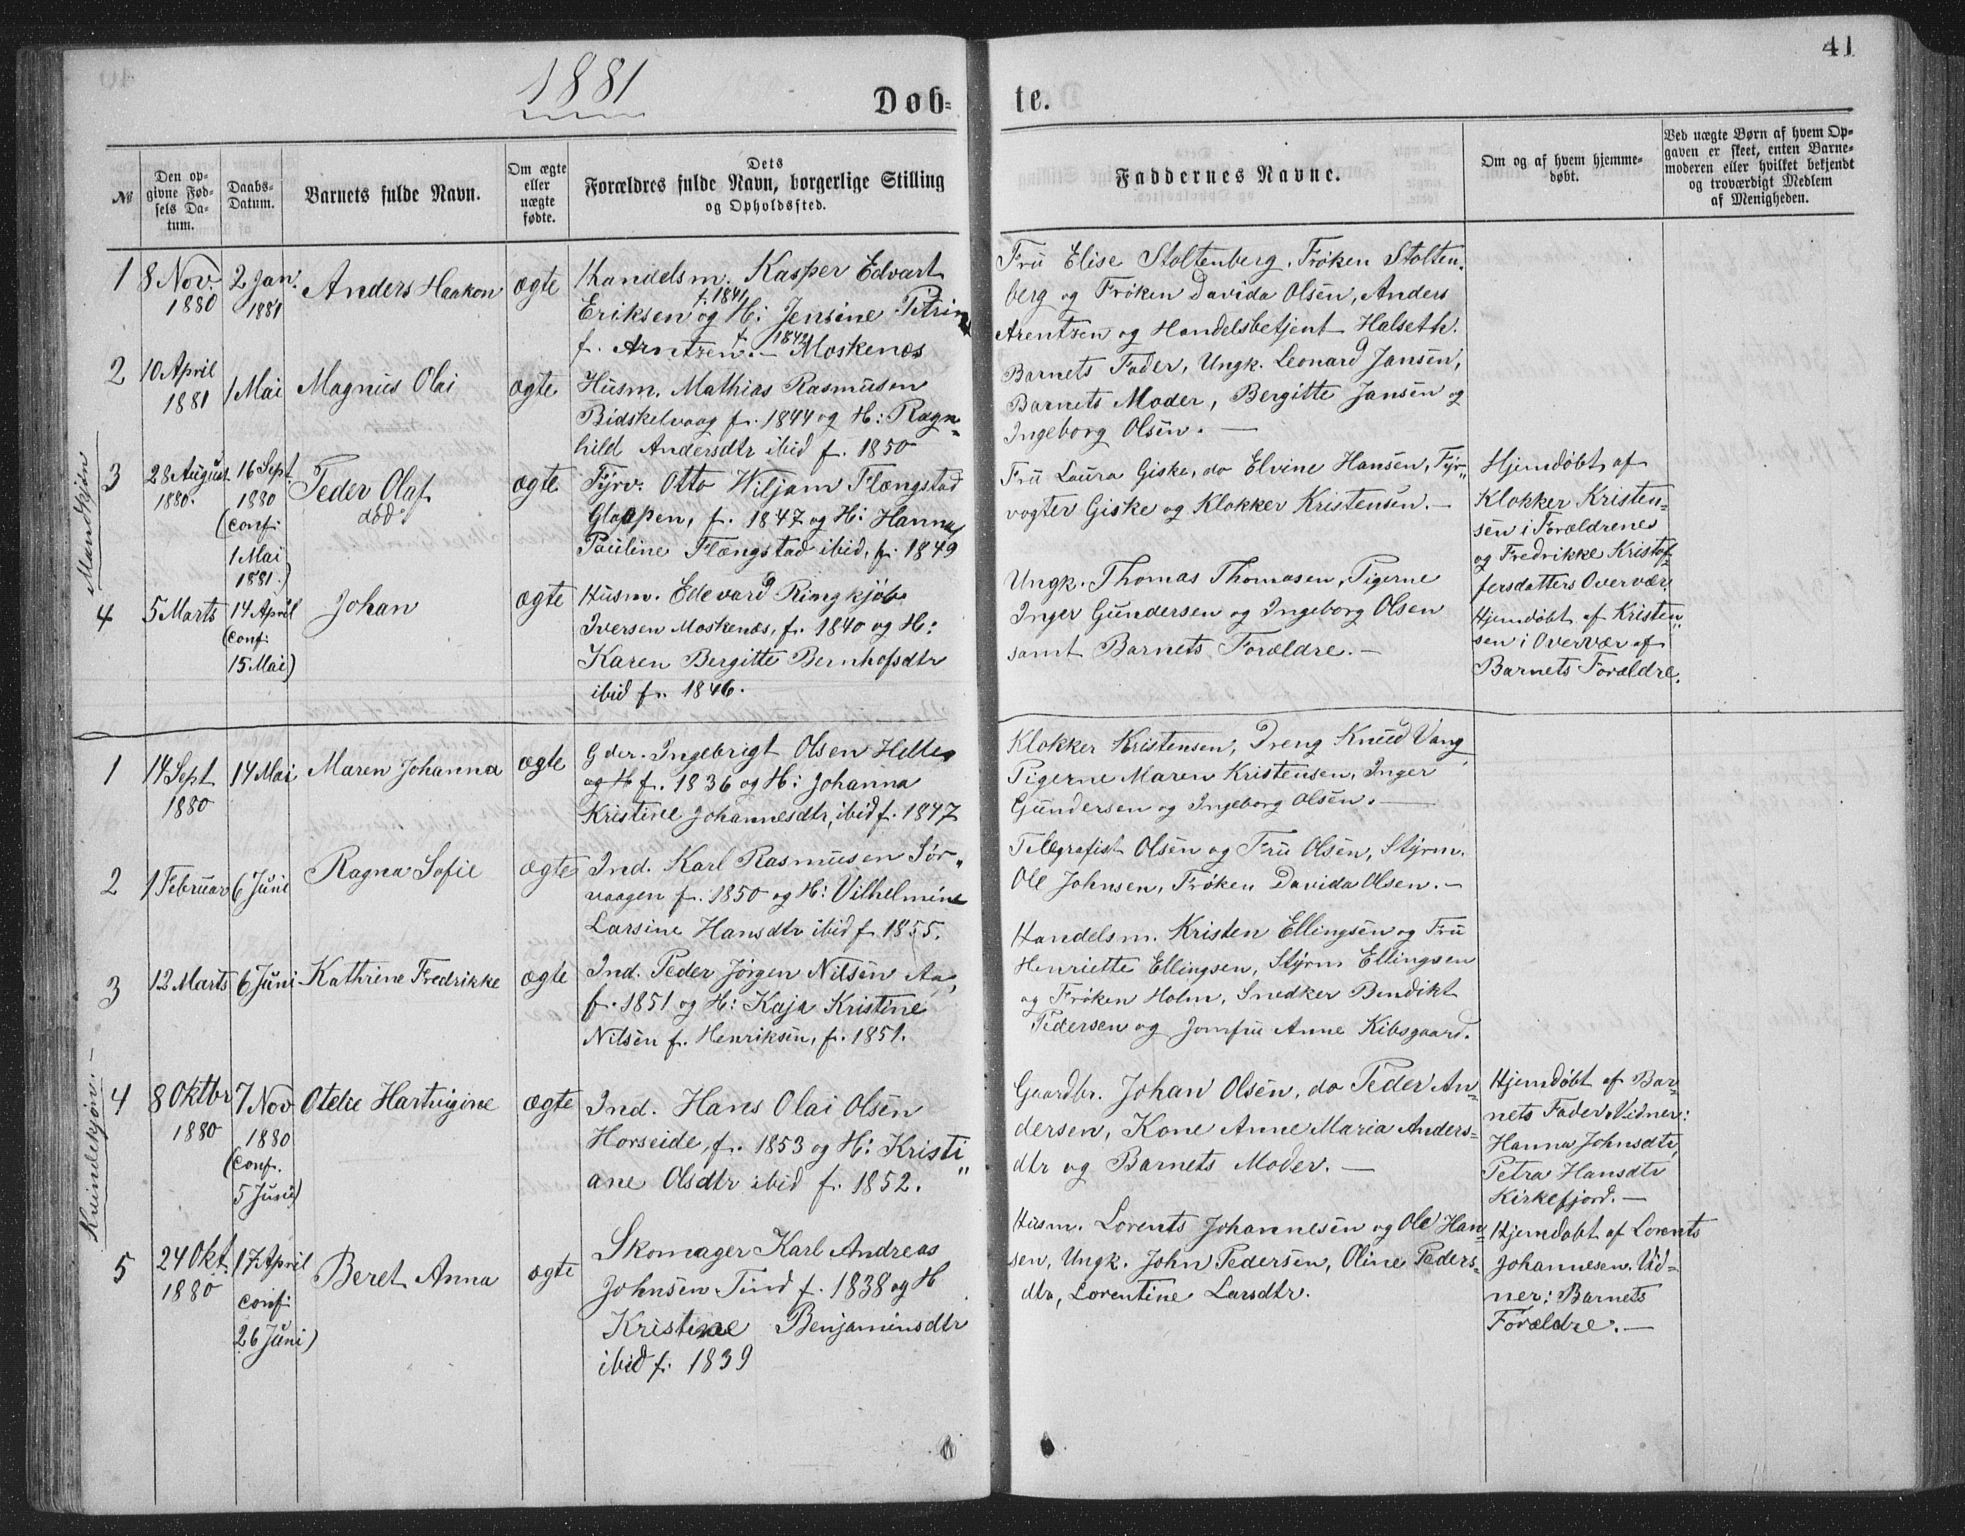 1881
41
Døb-
te.
№
Den op-
givne Fød-
sels Da-
tum.
Daabs-
Datum.
Barnets fulde Navn.
Om ægte
eller
uægte
fødte.
Dets
Forældres fulde Navn, borgerlige Stilling
og Opholdssted.
Faddernes Navne.
Om og af hvem hjemme-
døbt.
Ved uægte Børn af hvem Op-
gaven er skeet, enten Barne-
moderen eller hvilket bekjendt
og troværdigt Medlem
af Menigheden.
Mandkjön
1
8 Nov.
1880
2 Jan.
1881
Anders Haakon
ægte
Handelsm. Kasper Edvart
f. 1841
Eriksen og H: Jensine Petrine
f. Arntzen. f. 1842 - Moskenæs
Fru Elise Stoltenberg, Frøken Stolten-
berg og Frøken Davida Olsen, Anders
Arentzen og Handelsbetjent Halseth.
2
10 April
1881
1 Mai
Magnus Olai
ægte
Husm. Mathias Rasmusen
Bidskelvaag f. 1844 og H: Ragn-
hild Andersdtr ibid f. 1850
Barnets Fader, Ungk. Leonard Jansen,
Barnets Moder, Bergitte Jansen og
Ingeborg Olsen. —
3
28 August
1880.
16 Sept
1880
(conf:
1 Mai
1881.)
Peder Olaf
död
ægte
Fyrv: Otto Wiljam Flængstad
Glaapen, f. 1847 og H: Hanna
Pauline Flængstad ibid, f. 1849
Fru Laura Giske, do Elvine Hansen, Fyr-
vogter Giske og Klokker Kristensen. —
Hjemdøbt af
Klokker Kristen-
sen i Forældrene
og Fredrikke Kristof-
fersdatters Overvær.
4
5 Marts
14 April
(conf:
15 Mai)
Johan
ægte
Husm. Edevard Ringkjöb
Iversen Moskenæs, f. 1840 og H:
Karen Bergitte Bernhofsdtr
ibid f. 1846.
Ungk. Thomas Thomasen, Pigerne
Inger Gundersen og Ingeborg Olsen
samt Barnets Forældre. —
Hjemdøbt af Kristen-
sen i Overvær af
Barnets Forældre.
Kvindekjön. —
1
14 Sept
1880
14 Mai
Maren Johanna
ægte
Gder. Ingebrigt Olsen Helle
og H f. 1836 og H: Johanna
Kristine Johannesdtr, ibid f. 1847
Klokker Kristensen, Dreng Knud Vang
Pigerne Maren Kristensen, Inger
Gundersen og Ingeborg Olsen. —
2
1 Februar
6 Juni
Ragna Sofie
ægte
Ind. Karl Rasmusen Sør-
vaagen f. 1850 og H: Vilhelmine
Larsine Hansdtr ibid f 1855.
Telegrafist Olsen og Fru Olsen, Styrm.
Ole Johnsen, Frøken Davida Olsen. —
3
12 Marts
6 Juni
Kathrine Fredrikke
ægte
Ind. Peder Jørgen Nilsen Aa,
f. 1851 og H: Kaja Kristine
Nilsen f. Henriksen, f. 1851.
Handelsm. Kristen Ellingsen og Fru
Henriette Ellingsen, Styrm Ellingsen
og Frøken Holm, Snedker Bendikt
Pedersen og Jomfru Anne Kibsgaard.
4
8 Oktbr
1880
7 Nov
1880
(conf.
5 Juni)
Otelie Hartvigine
ægte
Ind. Hans Olai Olsen
Horseide, f. 1853 og H: Kristi-
ane Olsdtr ibid f. 1852.
Gaardbr. Johan Olsen, do Peder An-
dersen, Kone Anne Maria Anders-
dtr og Barnets Moder. —
Hjemdøbt af Bar-
nets Fader. Vidner:
Hanna Johnsdtr,
Petra Hansdtr
Kirkefjord. —
5
24 Okt.
1880
17 April
conf:
26 Juni)
Beret Anna
ægte
Skomager Karl Andreas
Johnsen Tind f. 1838 og H
Kristine Benjaminsdtr
ibid f. 1839
Husm. Lorents Johannesen og Ole Han-
sen, Ungk. John Pedersen, Oline Peders-
dtr, Lorentine Larsdtr.
Hjemdøbt af Lorents
Johannesen. Vid-
ner: Barnets
Forældre. —